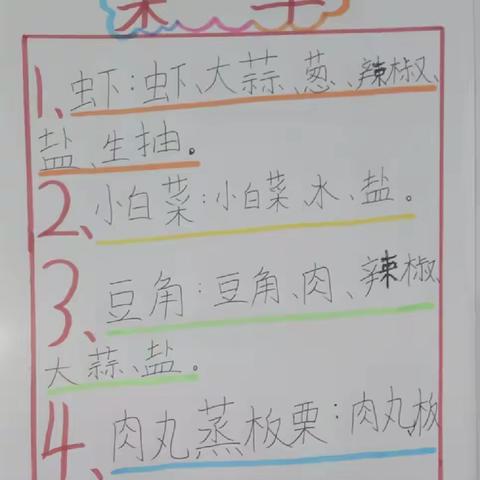 菜单
1、虾:虾、大蒜、葱、辣椒、
盐、生抽。
2、小白菜:小白菜、水、盐。
3、豆角:豆角、肉、辣椒、
大蒜、盐。
4、肉丸蒸板栗:肉丸、板